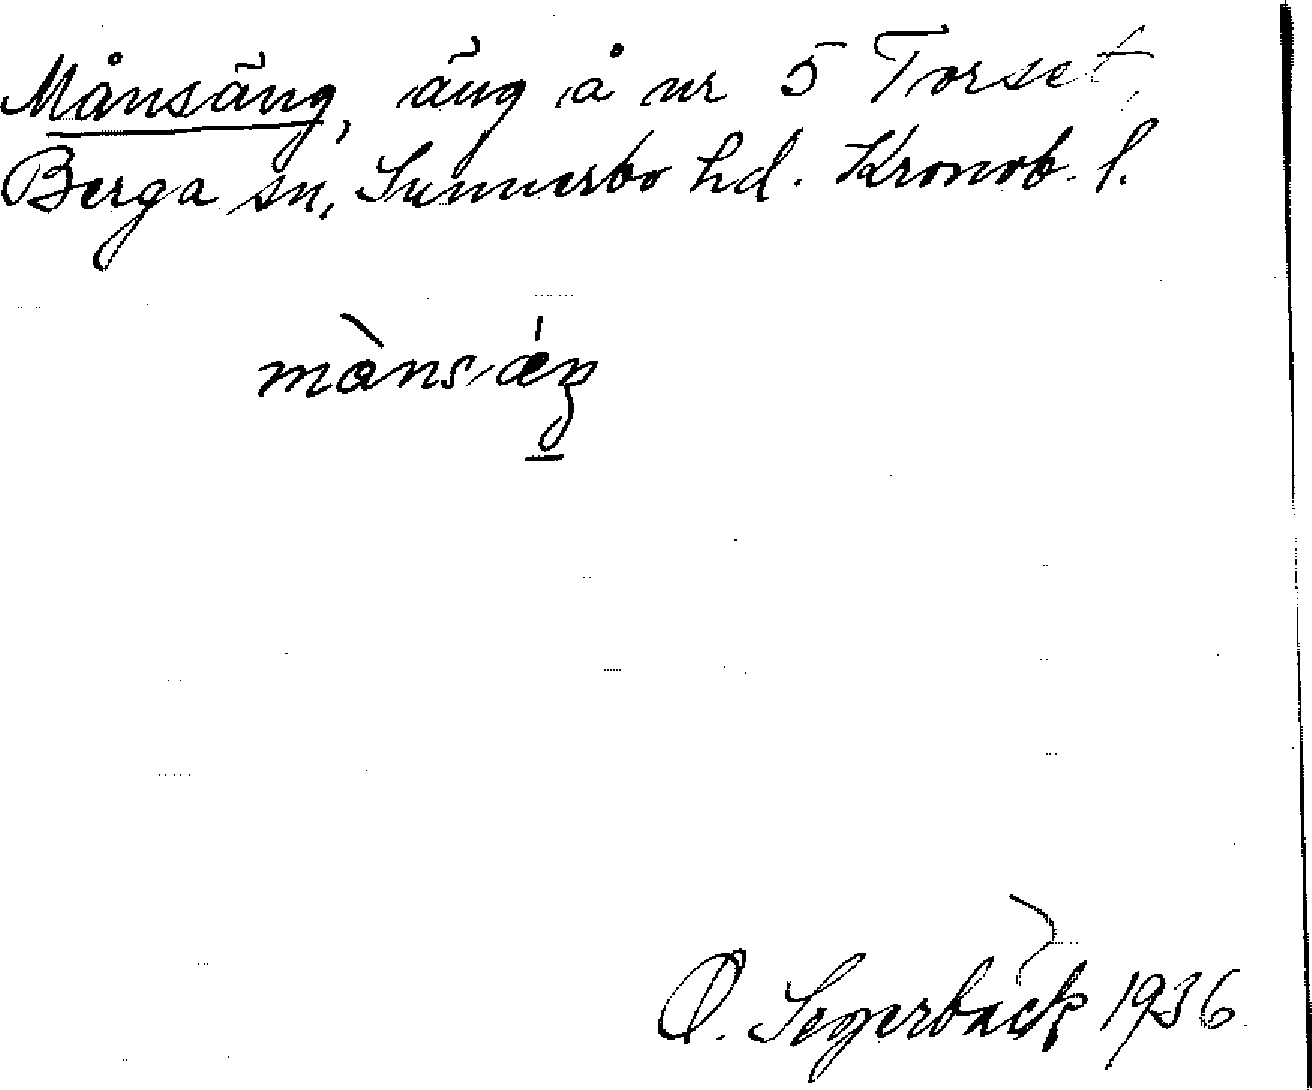 Månsäng, äng å nr 5 Torset,
Berga sn, Sunnerbo hd. Kronob. l.
O. Segerbäck 1936